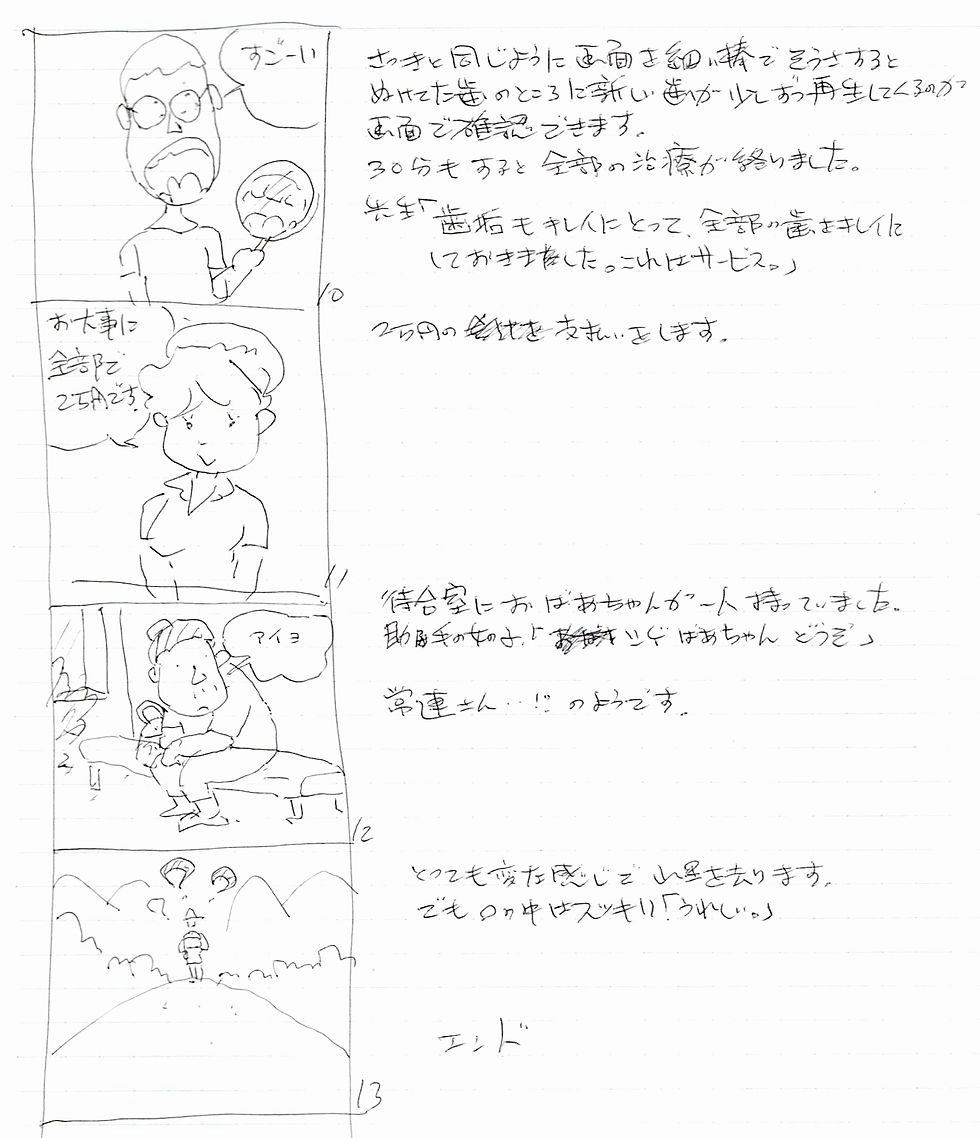 すごーい
さっきと同じように画面を細い棒でそうさすると
ぬけてた歯のところに新しい歯が少しずつ再生してくるのが
画面で確認できます。
30分もすると全部の治療が終りました。
先生「歯垢もキレイにとって、全部の歯をキレイに
しておきました。これはサービス。」
10
お大事に
全部で
2万円です。
2万円の支払いをします。
11
アイヨ
待合室におばあちゃんが一人待っていました。
助手の女の子「ばあちゃんどうぞ」
常連さん・・!! のようです。
12
とっても変な感じで山里を去ります。
でも口の中はスッキリ「うれしい。」
エンド
13